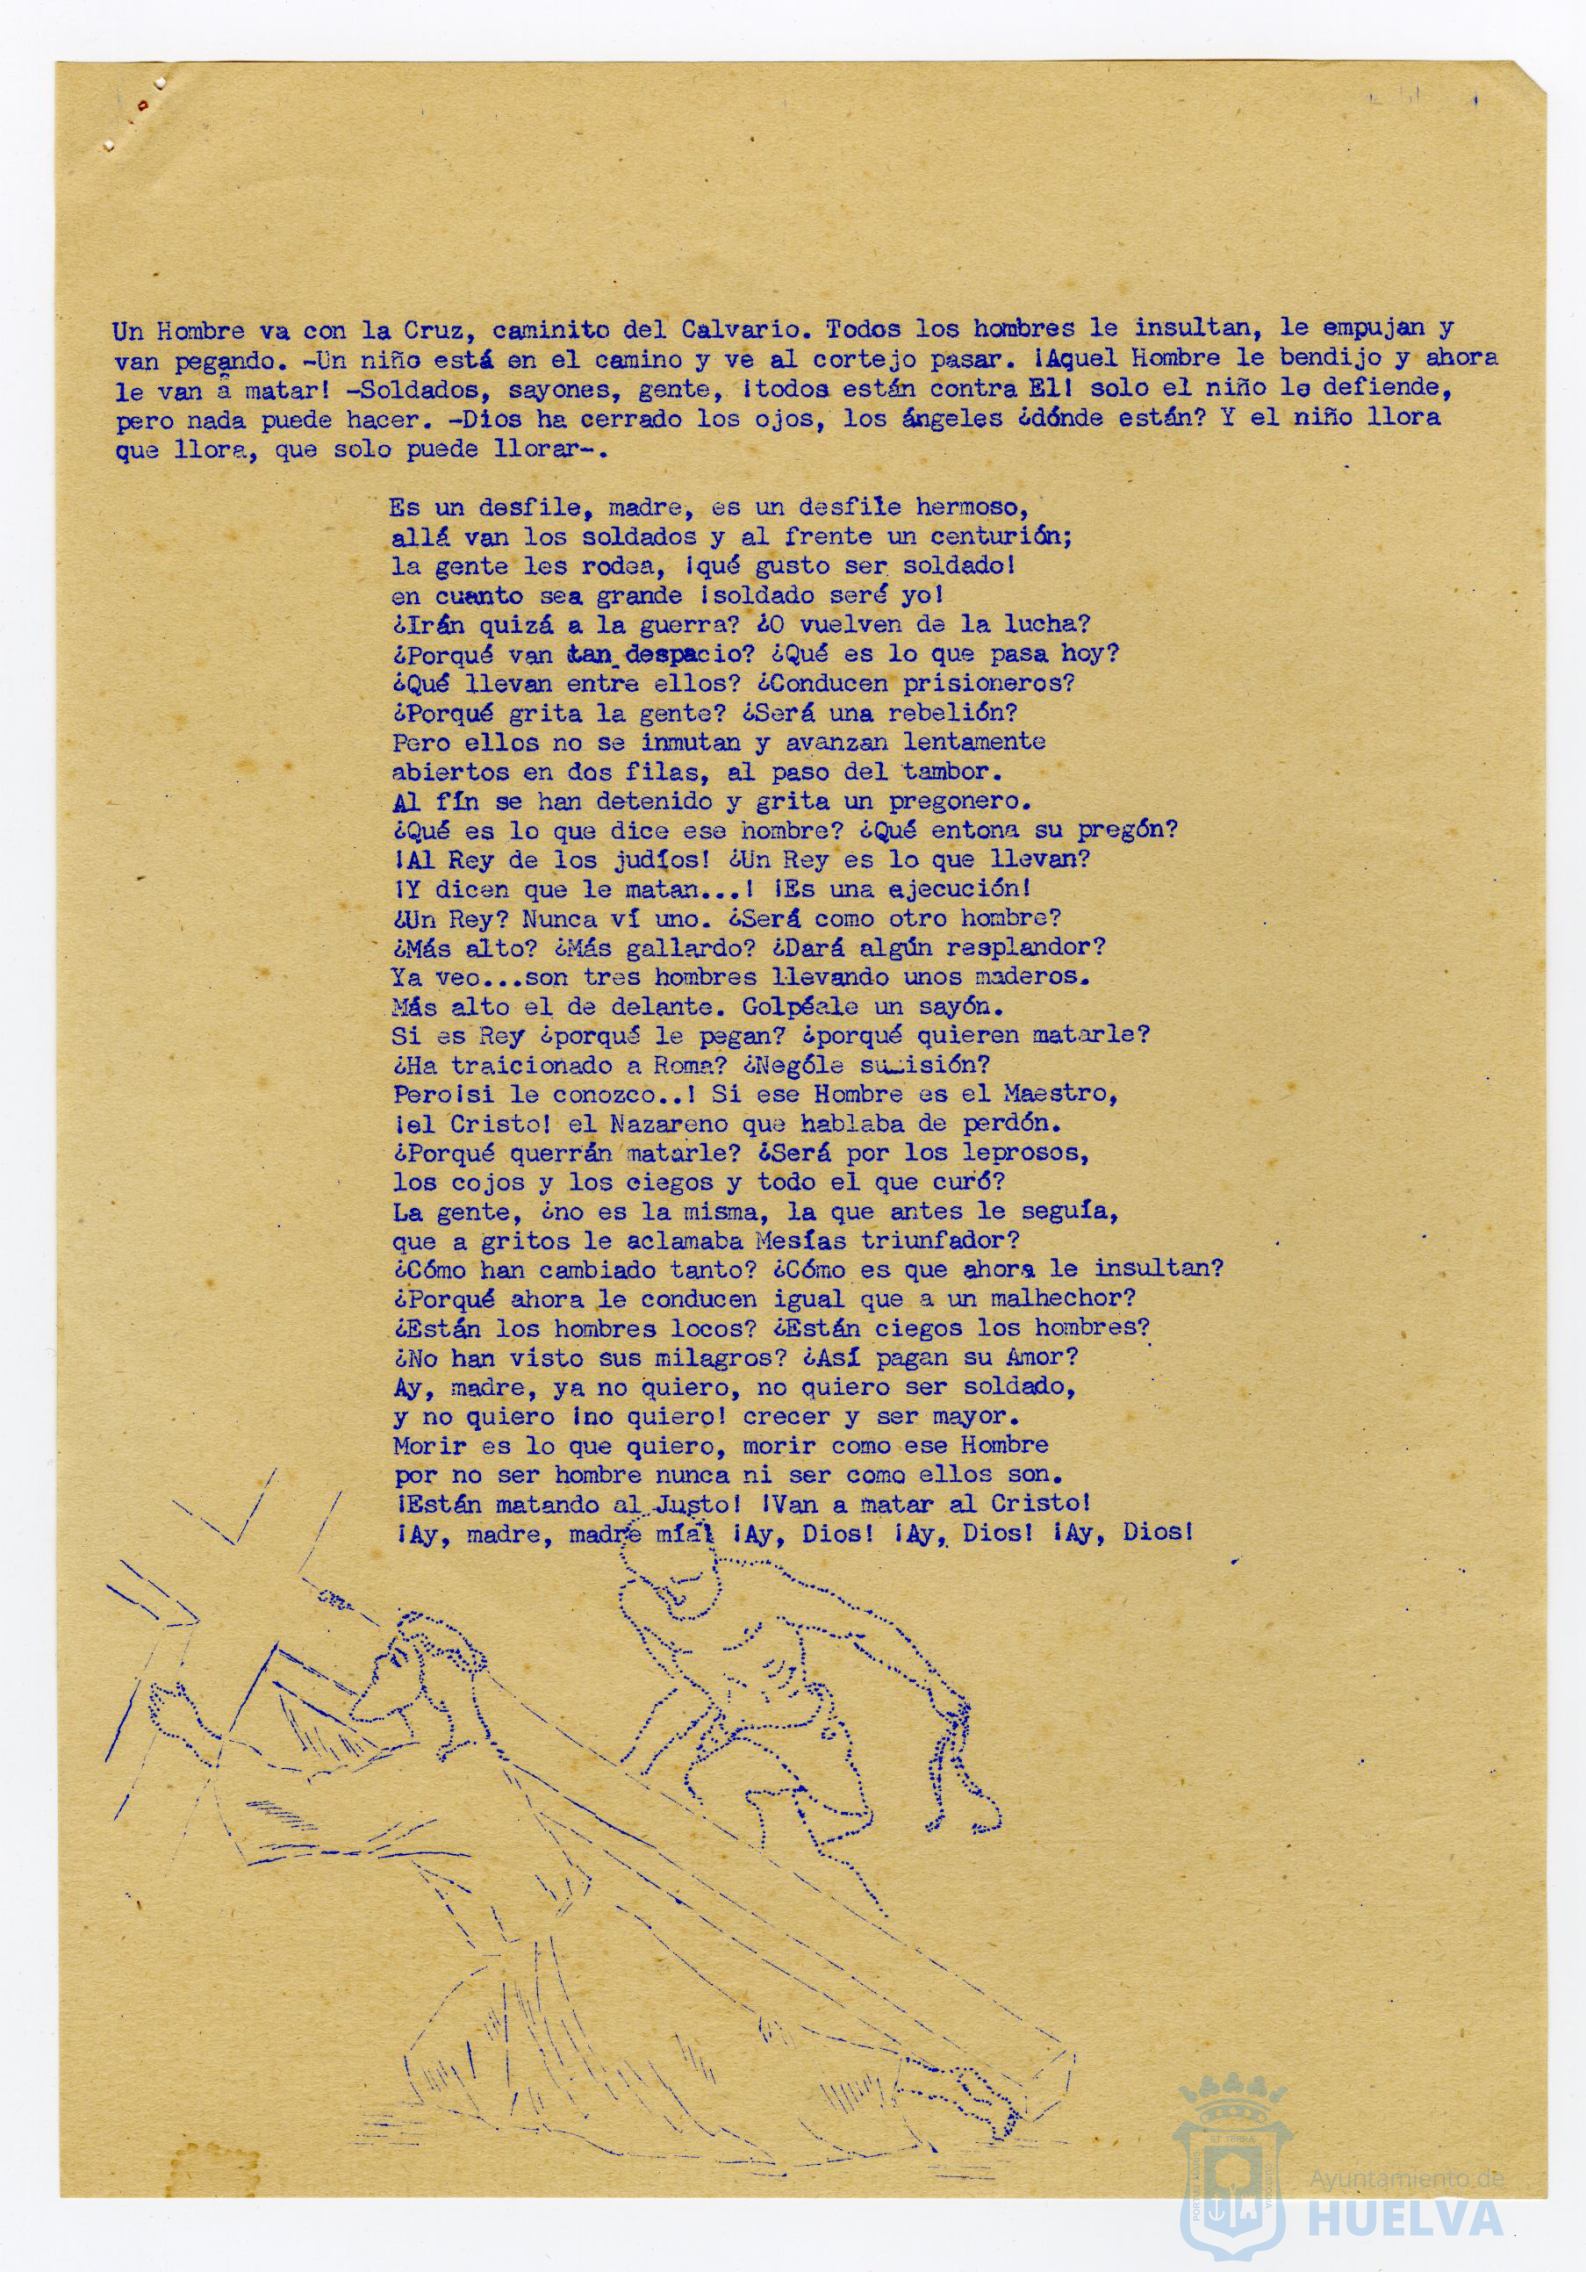 Un Hombre va con la Cruz, caminito del Calvario. Todos los hombres le insultan, le empujan y
van pegando. -Un niño está en el camino y ve al cortejo pasar. ¡Aquel Hombre le bendijo y ahora
le van a matar! -Soldados, sayones, gente, ¡todos están contra El! solo el niño le defiende,
pero nada puede hacer. -Dios ha cerrado los ojos, los ángeles ¿dónde están? Y el niño llora
que llora, que solo puede llorar-.
Es un desfile, madre, es un desfile hermoso,
allá van los soldados y al frente un centurión;
la gente les rodea, ¡qué gusto ser soldado!
en cuanto sea grande ¡soldado seré yo!
¿Irán quizá a la guerra? ¿O vuelven de la lucha?
¿Porqué van tan despacio? ¿Qué es lo que pasa hoy?
¿Qué llevan entre ellos? ¿Conducen prisioneros?
¿Porqué grita la gente? ¿Será una rebelión?
Pero ellos no se inmutan y avanzan lentamente
abiertos en dos filas, al paso del tambor.
Al fín se han detenido y grita un pregonero.
¿Qué es lo que dice ese hombre? ¿Qué entona su pregón?
¡Al Rey de los judíos! ¿Un Rey es lo que llevan?
¡Y dicen que le matan...! ¡Es una ejecución!
¿Un Rey? Nunca ví uno. ¿Será como otro hombre?
¿Más alto? ¿Más gallardo? ¿Dará algún resplandor?
Ya veo...son tres hombres llevando unos maderos.
Más alto el de delante. Golpéale un sayón.
Si es Rey ¿porqué le pegan? ¿porqué quieren matarle?
¿Ha traicionado a Roma? ¿Nególe
Pero¡si le conozco..! Si ese Hombre es el Maestro,
¡el Cristo! el Nazareno que hablaba de perdón.
¿Porqué querrán matarle? ¿Será por los leprosos,
los cojos y los ciegos y todo el que curó?
La gente, ¿no es la misma, la que antes le seguía,
que a gritos le aclamaba Mesías triunfador?
¿Cómo han cambiado tanto? ¿Cómo es que ahora le insultan?
¿Porqué ahora le conducen igual que a un malhechor?
¿Están los hombres locos? ¿Están ciegos los hombres?
¿No han visto sus milagros? ¿Así pagan su Amor?
Ay, madre, ya no quiero, no quiero ser soldado,
y no quiero ¡no quiero! crecer y ser mayor.
Morir es lo que quiero, morir como ese Hombre
por no ser hombre nunca ni ser como ellos son.
¡Están matando al Justo! ¡Van a matar al Cristo!
¡Ay, madre, madre mía! ¡Ay, Dios! ¡Ay, Dios! ¡Ay, Dios!
Ayuntamiento de
HUELVA